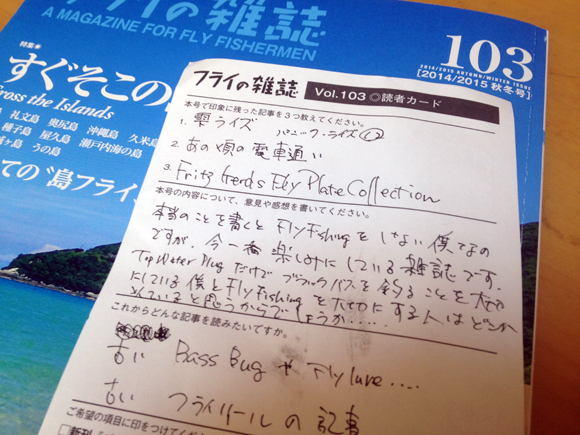 フライの雑誌
A MAGAZINE FOR FLY FISHERMEN
103
2014/2015 AUTUMN/WINTER ISSUE
[2014/2015 秋冬号]
特集
すぐそこの
ross the Islands
礼文島 奥尻島 沖縄島 久米島
種子島 屋久島 瀬戸内海の島
ヶ島 うの島
ての〝島フライ
フライの雑誌 Vol.103◎読者カード
本号で印象に残った記事を3つ教えてください。
1. 雫ライズ パニック・ライズ
2. あの頃の電車通い
3. Fritz Gerds Fly Plate Collection
本号の内容について、意見や感想を書いてください。
本当のことを書くとFlyFishingをしない僕なの
ですが、今一番楽しみにしている雑誌です。
Top Water Plugだけでブラックバスを釣ることを大切
にしている僕とFlyFishingを大切にする人はどこか
似ていると思うからでしょうか.....
これからどんな記事を読みたいですか。
古い Bass Bug や Fly lure....
古い フライリールの記事
ご希望の項目に印をつけてください
新刊